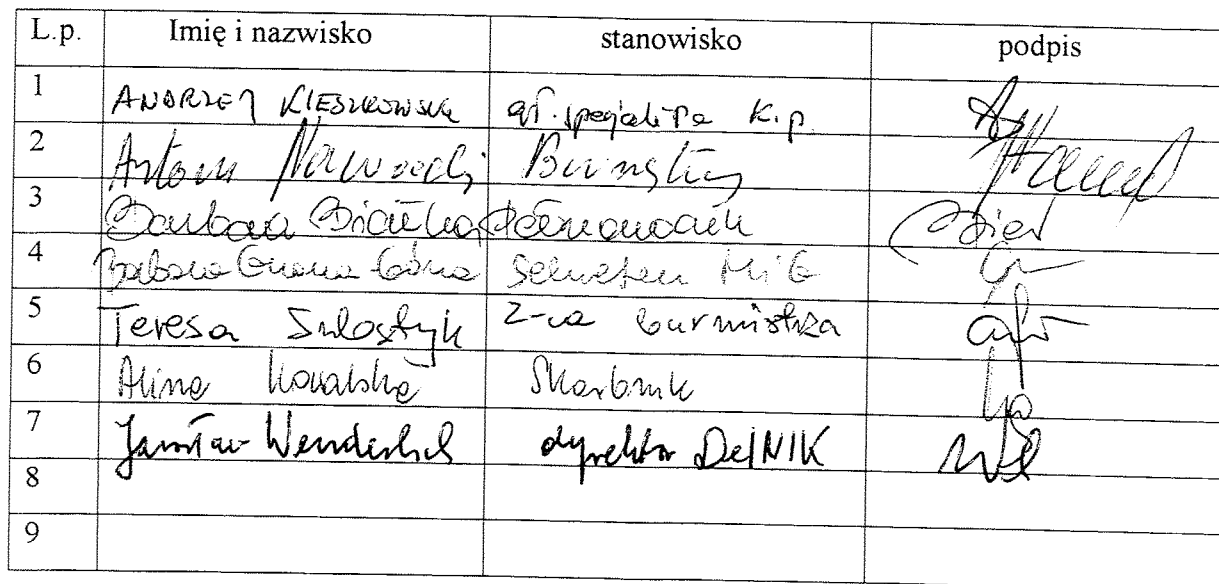 L.p. Imię i nazwisko stanowisko podpis
1 ANDRZEJ KIESZKOWSKI gł. specjalista K.p.
2 Antoni Nawrocki Burmistrz
3 Barbara Białka Pełnomocnik
4 Barbara Góra Sekretarz MiG
5 Teresa z-ca burmistrza
6 Alina Kowalska Skarbnik
7 Jarosław Wenderlich dyrektor Del NIK
8
9